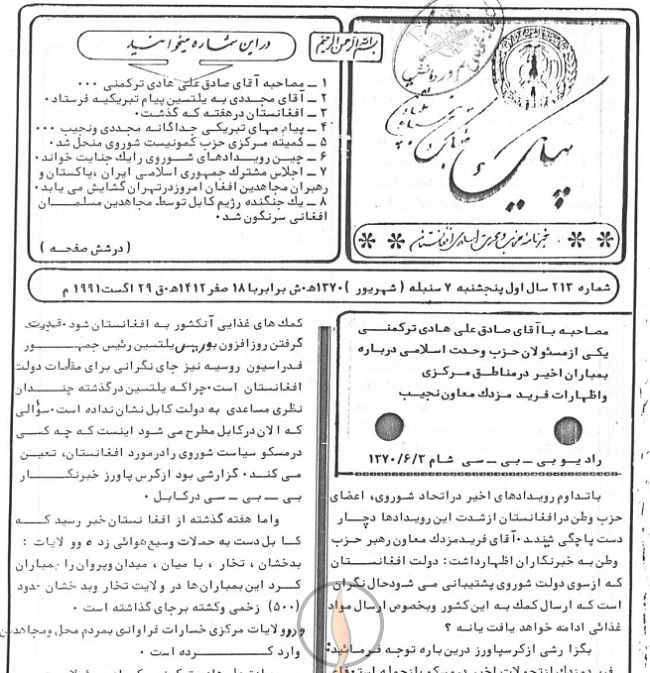 بسم الله الرحمن الرحیم
در این شماره میخوانید
۱ ــ مصاحبه آقای صادق علی هادی ترکمنی ۰۰۰
۲ ــ آقای مجددی به یلتسین پیام تبریکیه فرستاد۰
۳ ــ افغانستان درهفته که گذشت۰
۴ ــ پیام های تبریکی جداگانه مجددی ونجیب ۰۰۰
۵ ــ کمیته مرکزی حزب کمونیست شوروی منحل شد۰
۶ ــ چین رویدادهای شوروی رایك جنایت خواند۰
۷ ــ اجلاس مشترك جمهوری اسلامی ایران ،پاکستان و
رهبران مجاهدین افغان امروزدرتهران گشایش می یابد۰
۸ ــ یك جنگنده رژیم کابل توسط مجاهدین مسلمان
افغانی سرنگون شد۰
( درشش صفحه )
خبرنامه حزب وحدت اسلامی افغانستان
شماره ۲۱۳ سال اول پنجشنبه ۷ سنبله ( شهریور )۱۳۷۰ه‍۰ش برابربا ۱۸ صفر ۱۴۱۲ه‍۰ق ۲۹ اگست ۱۹۹۱ م
مصاحبه باآقای صادق علی هادی ترکمنی
یکی ازمسئولان حزب وحدت اسلامی درباره
بمباران اخیر درمناطق مرکزی
واظهارات فرید مزدك معاون نجیب
رادیو بی ــ بی ــ سی شام ۱۳۷۰/۶/۳
باتداوم رویدادهای اخیر دراتحاد شوروی، اعضای
حزب وطن درافغانستان ازشدت این رویدادها دچار
دست پاچگی شدند۰آقای فریدمزدك معاون رهبر حزب
وطن به خبرنگاران اظهارداشت: دولت افغانستان
که ازسوی دولت شوروی پشتیبانی می شودحال نگران
است که ارسال کمك به این کشور وبخصوص ارسال مواد
غذائی ادامه خواهد یافت یانه ؟
بگزارشی ازکرسپاورز درین باره توجه فرمائید:
کمك های غذایی آنکشور به افغانستان شود۰قدرت
گرفتن روزافزون بوریس یلتسین رئیس جمهور
فدراسیون روسیه نیز جای نگرانی برای مقامات دولت
افغانستان است۰چراکه یلتسین درگذشته چندان
نظری مساعدی به دولت کابل نشان نداده است۰سؤالی
که الان درکابل مطرح می شود اینست که چه کسی
درمسکو سیاست شوروی رادرمورد افغانستان، تعیین
می کند۰ گزارشی بود ازکرس پاورز خبرنگار
بی ــ بی ــ سی درکابل ۰
واما هفته گذشته از افغانستان خبر رسید که
کابل دست به حملات وسیع هوائی زده وولایات :
بدخشان ، تخار ، بامیان ، میدان وپروان رابمباران
کرد این بمباران ها در ولایت تخار وبدخشان حدود
(۵۰۰) زخمی وکشته برجای گذاشته است ۰
ودرولایات مرکزی خسارات فراوانی بمردم محل ومجاهدین
وارد کرده است ۰